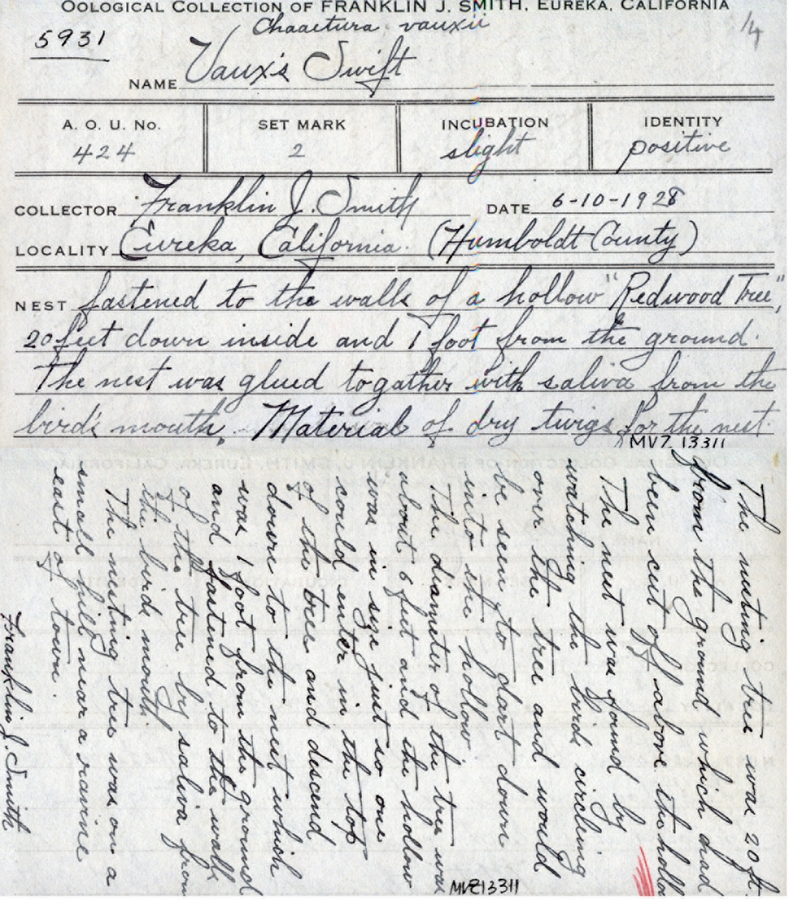 OOLOGICAL COLLECTION OF FRANKLIN J. SMITH, EUREKA, CALIFORNIA
Chaetura vauxii
1/4
5931
NAME Vaux's Swift
A. O. U. No. SET MARK INCUBATION IDENTITY
424 2 slight positive
COLLECTOR Franklin J. Smith DATE 6-10-1928
LOCALITY Eureka, California. (Humboldt County)
NEST fastened to the walls of a hollow "Redwood Tree",
20 feet down inside and 1 foot from the ground.
The nest was glued togather with saliva from the
bird's mouth. Material of dry twigs for the nest.
MVZ 13311
The nesting tree was 20 ft.
from the ground which had
been cut off above the hollow
The nest was found by
watching the birds circling
over the tree and would
be seen to dart down
into the hollow.
The diameter of the tree was
about 6 feet and the hollow
was in size just so one
could enter in the top
of the tree and descend
down to the nest which
was 1 foot from the ground
and fastened to the walls
of the tree by saliva from
the birds mouth.
The nesting tree was on a
small hill near a ravine
east of town.
Franklin J. Smith
MVZ13311